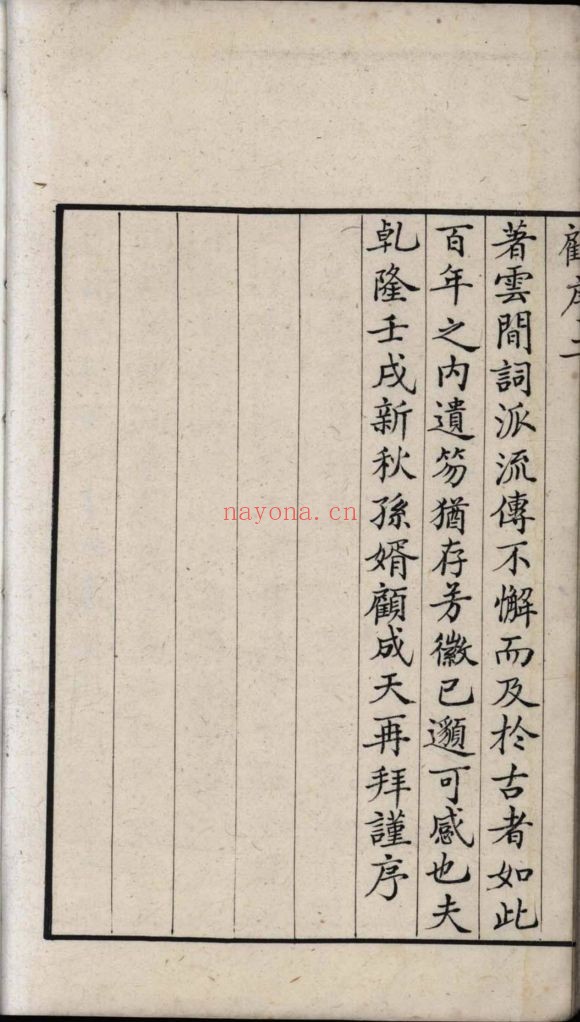 顧序二
著雲間詞派流傳不懈而及於古者如此
百年之内遺笏猶存芳徽已邈可感也夫
乹隆壬戌新秋孫婿顧成天再拜謹序
nayona.cn